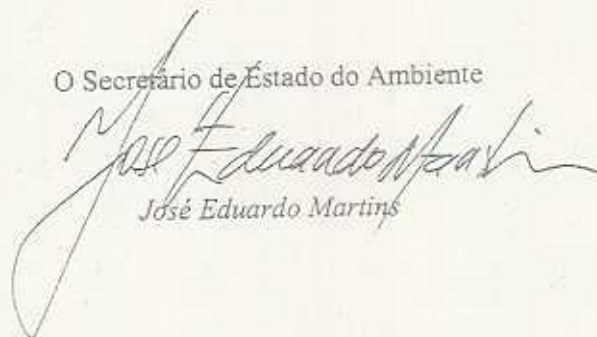 O Secretário de Estado do Ambiente
José Eduardo Martins
José Eduardo Martins